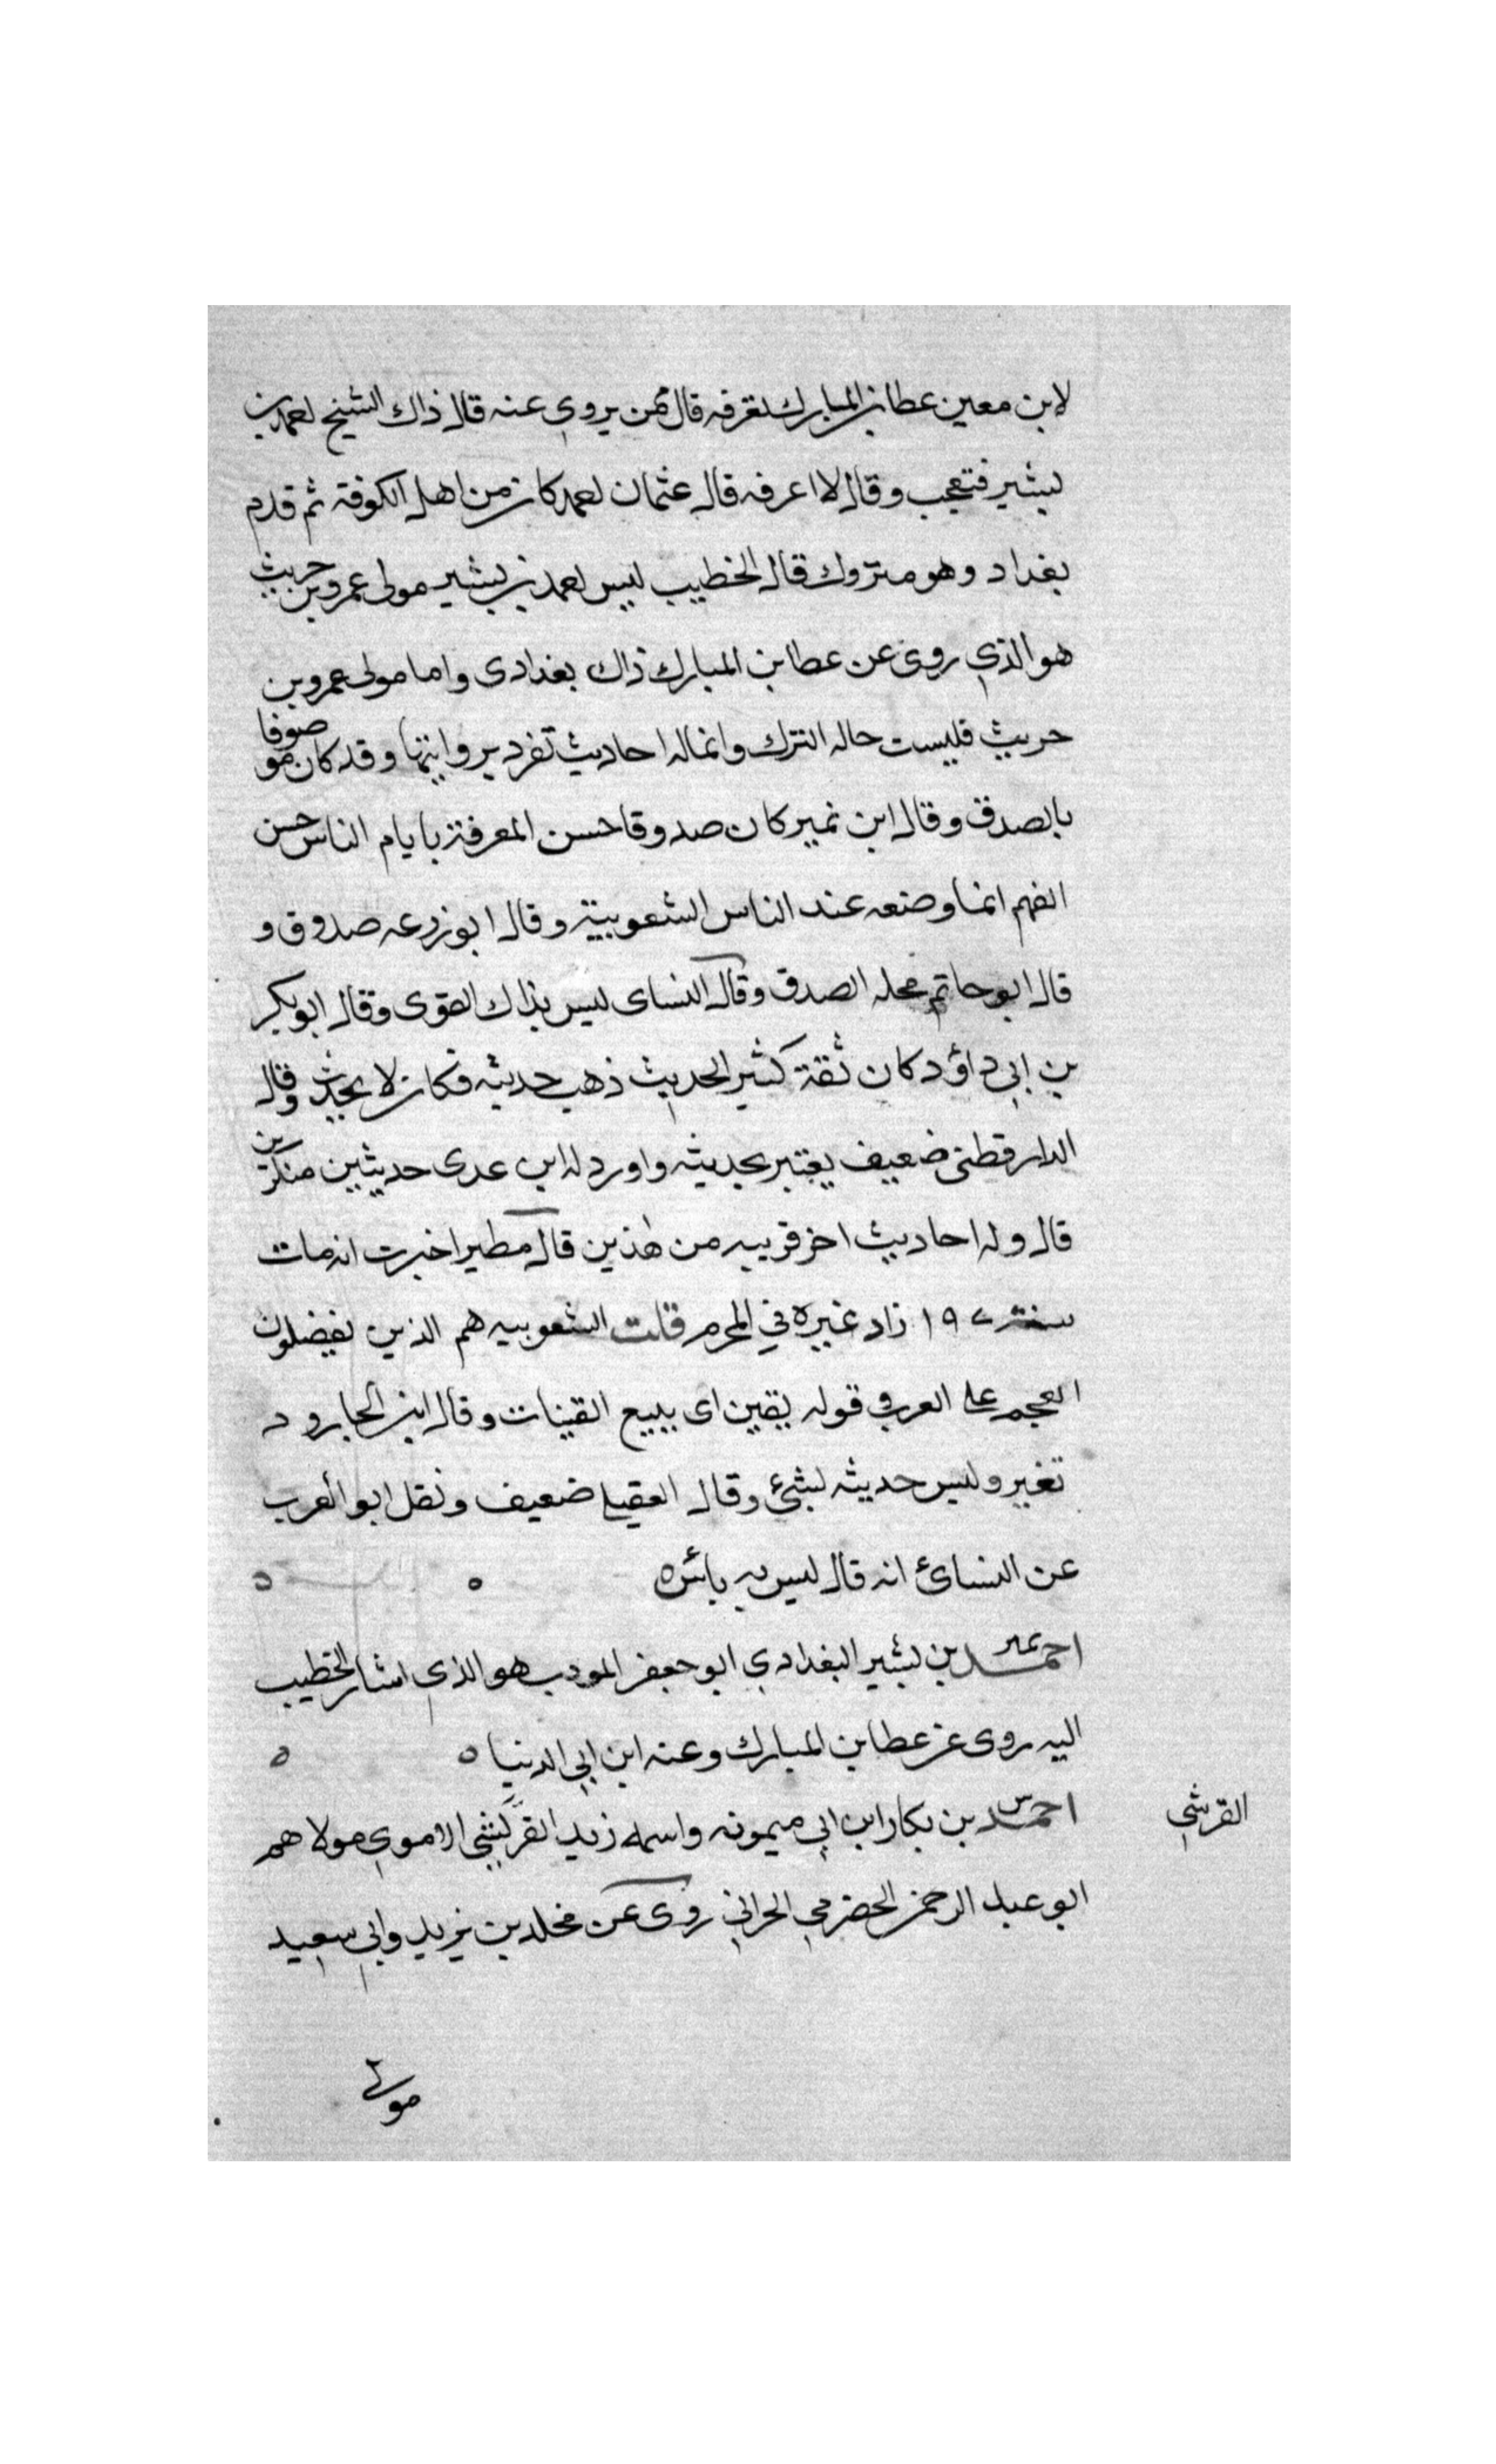 لابن معين عطا بن المبارك تعرفه قال من يروى عنه قال ذاك الشيخ احمد بن
بشير فتعجب وقال لا اعرفه قال عثمان احمد كان من اهل الكوفة ثم قدم
بغداد وهو متروك قال الخطيب ليس احمد بن بشير مولى عمرو بن حريث
هو الذي روى عن عطا بن المبارك ذاك بغدادى واما مولى عمرو بن
حريث فليست حاله الترك وانما له احاديث تفرد بروايتها وقد كان موصوفا
بالصدق وقال ابن نمير كان صدوقا حسن المعرفة بايام الناس حسن
الفهم انما وضعه عند الناس الشعوبية وقال ابو زرعه صدوق و
قال ابو حاتم محله الصدق وقال النساى ليس بذاك القوى وقال ابو بكر
بن ابي داؤد كان ثقة كثير الحديث ذهب حديثه فكان لا يحدث وقال
الدارقطنى ضعيف يعتبر بحديثه واورد له ابن عدى حديثين منكرين
قال وله احاديث اخر قريبه من هذين قال مطير اخبرت انه مات
سنة ١٩٧ زاد غيره في المحرم قلت الشعوبيه هم الذين يفضلون
العجم على العرب قوله يقين اى يبيع القينات وقال ابن الجارود
تغير وليس حديثه بشئ وقال العقيلى ضعيف ونقل ابو العرب
عن النسائ انه قال ليس به بأس ه
احمد تمير بن بشير البغدادي ابو جعفر المودب هو الذي اشار الخطيب
اليه روى عن عطا بن المبارك وعنه ابن ابي الدنيا ه
احمد س بن بكار ابن ابي ميمونه واسمه زيد القرشي الاموي مولاهم
القرشي
ابو عبد الرحمن الحضرمي الحراني روى عن مخلد بن يزيد وابي سعيد
مولى